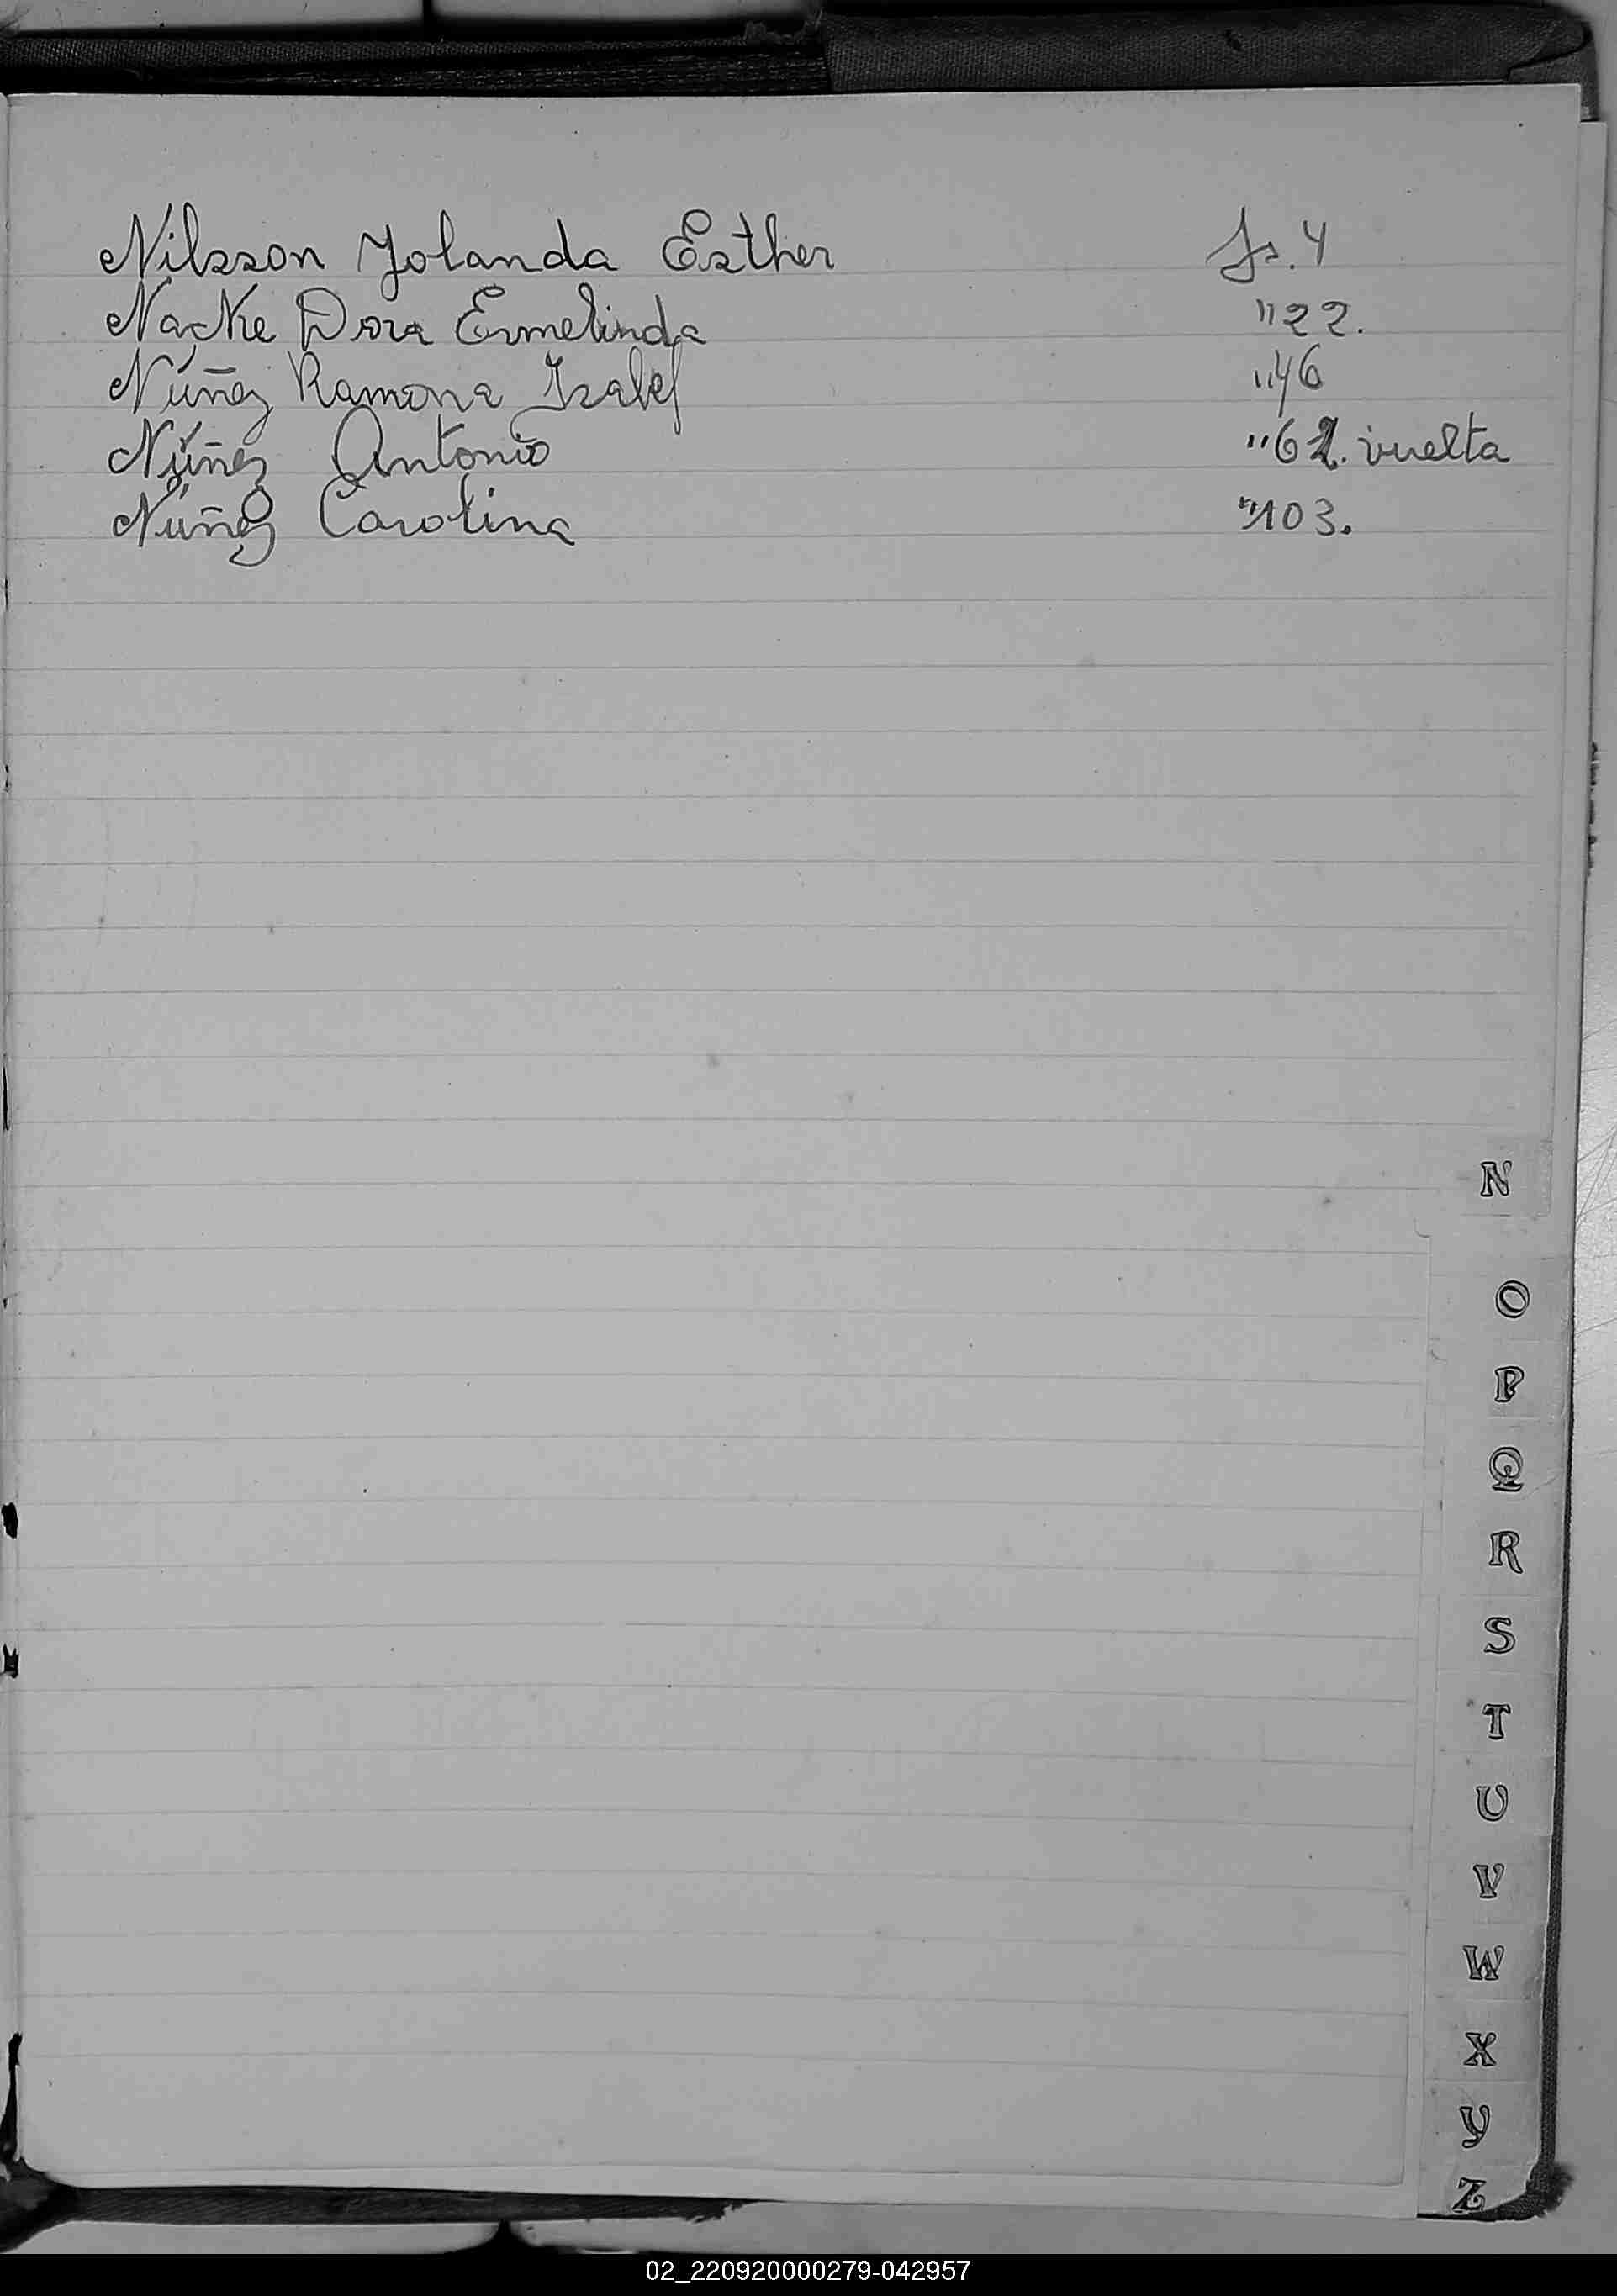 Nilsson Yolanda Esther fs. 4
Nacke Dora Ermelinda "22.
Núñez Ramona Isabel "46
Núñez Antonio "62. vuelta
Núñez Carolina "103.
N
O
P
Q
R
S
T
U
V
W
X
Y
Z
02_220920000279-042957